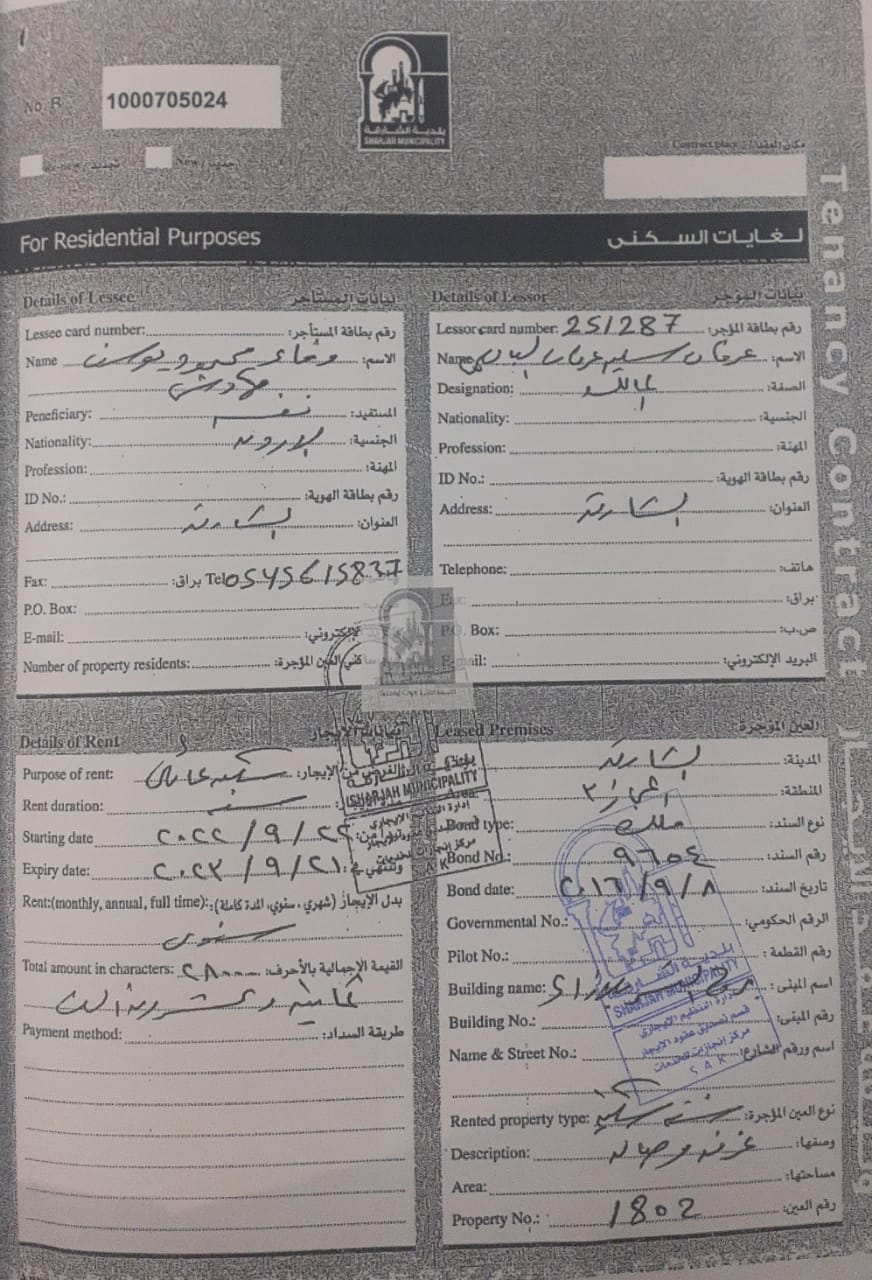 No. R 1000705024
بلدية الشارقة
SHARJAH MUNICIPALITY
Re-new / تجديد New / جديد
Contract place / مكان العقد
Tenancy Contract
For Residential Purposes لغايات السكنى
Details of Lessee بيانات المستأجر
Lessee card number: رقم بطاقة المستأجر:
Name وفاء محمود يوسف الاسم:
Peneficiary: نفسه المستفيد:
Nationality: الاردن الجنسية:
Profession: المهنة:
ID No.: رقم بطاقة الهوية:
Address: الشارقة العنوان:
Fax: براق: Tel 0545615837
P.O. Box:
E-mail: الإلكتروني:
Number of property residents: ساكني العين المؤجرة:
Details of Lessor بيانات المؤجر
Lessor card number: 251287 رقم بطاقة المؤجر:
Name عرفان سليم عرفان الاسم:
Designation: مالك الصفة:
Nationality: الجنسية:
Profession: المهنة:
ID No.: رقم بطاقة الهوية:
Address: الشارقة العنوان:
Telephone: هاتف:
Fax: براق:
P.O. Box: ص.ب:
E-mail: البريد الإلكتروني:
Details of Rent بيانات الإيجار
Purpose of rent: سكن عائلي الغرض من الإيجار:
Rent duration: سنة
Starting date ٢٠٢٢/٩/٢٢
Expiry date: ٢٠٢٣/٩/٢١ وتنتهي في:
Rent:(monthly, annual, full time): بدل الإيجار (شهري، سنوي، المدة كاملة):
سنوي
Total amount in characters: ٢٨٠٠٠ القيمة الإجمالية بالأحرف:
ثمانية وعشرون الف
Payment method: طريقة السداد:
Leased Premises العين المؤجرة
الشارقة المدينة:
Area: المجاز ٣ المنطقة:
Bond type: ملك نوع السند:
Bond No.: ٩٦٥٤ رقم السند:
Bond date: ٢٠١٦/٩/٨ تاريخ السند:
Governmental No.: الرقم الحكومي:
Pilot No.: رقم القطعة:
Building name: اسم المبنى:
Building No.: رقم المبنى:
Name & Street No.: اسم ورقم الشارع:
Rented property type: شقة سكنية نوع العين المؤجرة:
Description: غرفة وصالة وصفها:
Area: مساحتها:
Property No.: 1802 رقم العين:
بلدية الشارقة
SHARJAH MUNICIPALITY
إدارة التنظيم الإيجاري
مركز إنجازات للخدمات
A K
بلدية الشارقة
SHARJAH MUNICIPALITY
إدارة التنظيم الإيجاري
قسم تصديق عقود الإيجار
مركز إنجازات للخدمات
S A K